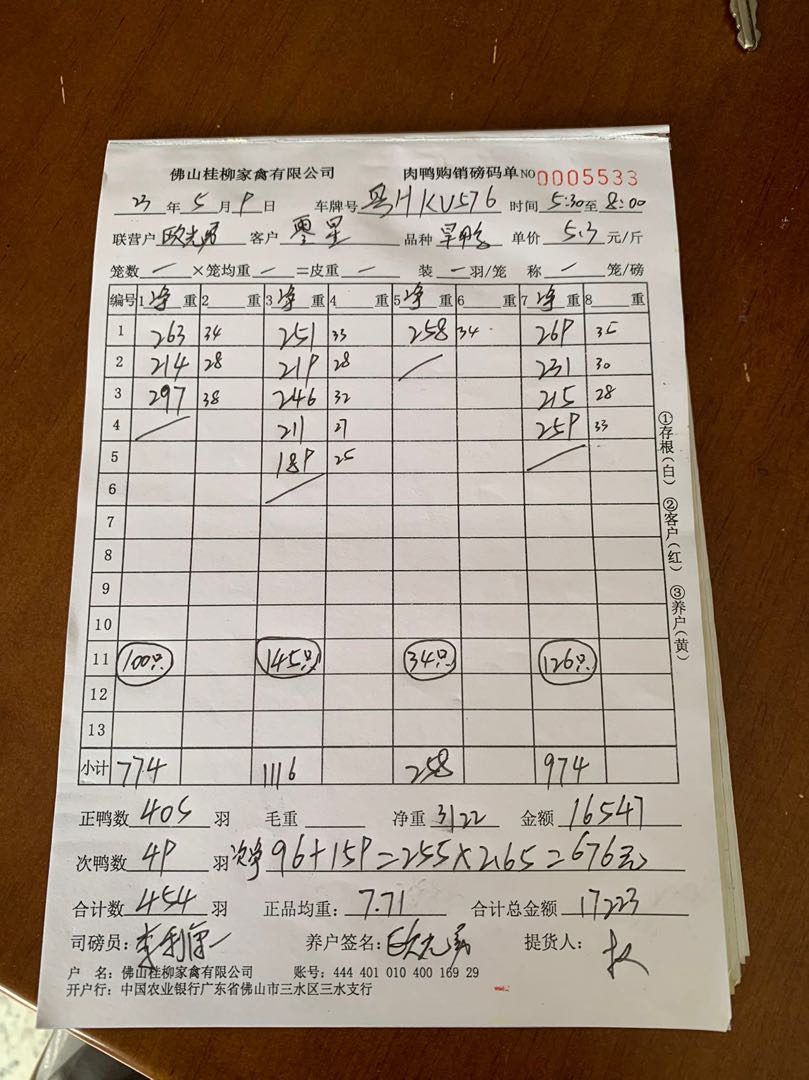 佛山桂柳家禽有限公司 肉鸭购销磅码单 NO 0005533
23 年 5 月 9 日 车牌号 粤HKU576 时间 5:30 至 8:00
联营户 客户 品种 旱鸭 单价 5.3 元/斤
笼数 一 ×笼均重 一 =皮重 一 装 一 羽/笼 称 一 笼/磅
编号 1 净 重 2 重 3 净 重 4 重 5 净 重 6 重 7 净 重 8 重
1 263 34 251 33 258 34 269 35
2 214 28 219 28 231 30
3 297 38 246 32 215 28
4 211 27 259 33
5 189 25
6
7
8
9
10
11 100只 145只 34只 126只
12
13
小计 774 1116 258 974
正鸭数 405 羽 毛重 净重 3122 金额 16547
次鸭数 49 羽 次净 96+159=255×2.65=676元
合计数 454 羽 正品均重: 7.71 合计总金额 17223
司磅员: 养户签名: 提货人:
户 名: 佛山桂柳家禽有限公司 账号: 444 401 010 400 169 29
开户行: 中国农业银行广东省佛山市三水区三水支行
①存根(白) ②客户(红) ③养户(黄)